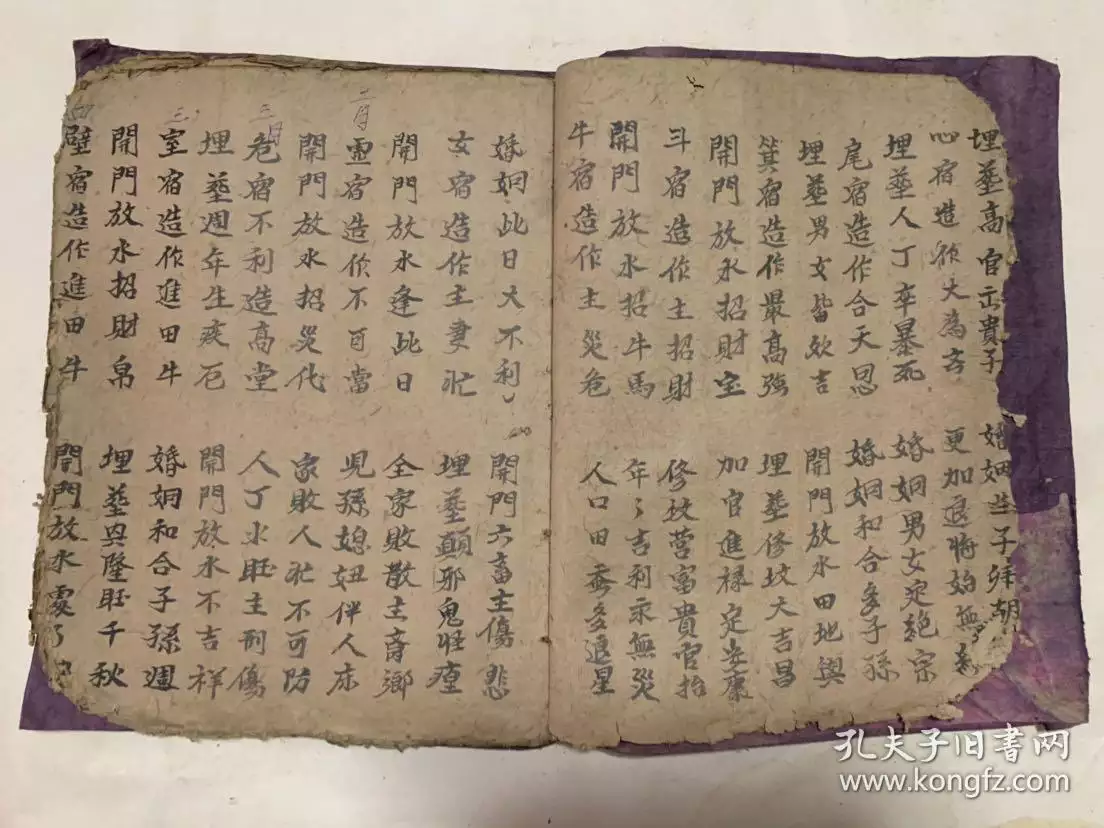 埋葬高官立貴子 婚姻 子拜朝
心宿造作大為 更加退將始無
埋葬人丁卒暴死 婚姻男女定絕宗
尾宿造作合天恩 婚姻和合多子孫
埋葬男女皆欢吉 開門放水田地興
箕宿造作最高強 埋葬修坟大吉昌
開門放水招財宝 加官進禄定安康
斗宿造作主招財 修坟营富貴官抬
開門放水招牛馬 年々吉利永無災
牛宿造作主災危 人口田蚕多退星
婚姻此日大不利 開門六畜主傷悲
女宿造作主妻忙 埋葬顛邪鬼怪
開門放水逢此日 全家敗散主 鄉
二月
虛宿造作不可當 児孫媳妞伴人床
開門放水招災代 家敗人忙不可防
三月
危宿不利造高堂 人丁水旺主刑傷
埋葬週年生疾厄 開門放水不吉祥
三
室宿造作進田牛 婚姻和合子孫週
開門放水招財帛 埋葬興隆旺千秋
壁宿造作進田牛 開門放水
孔夫子旧书网
www.kongfz.com